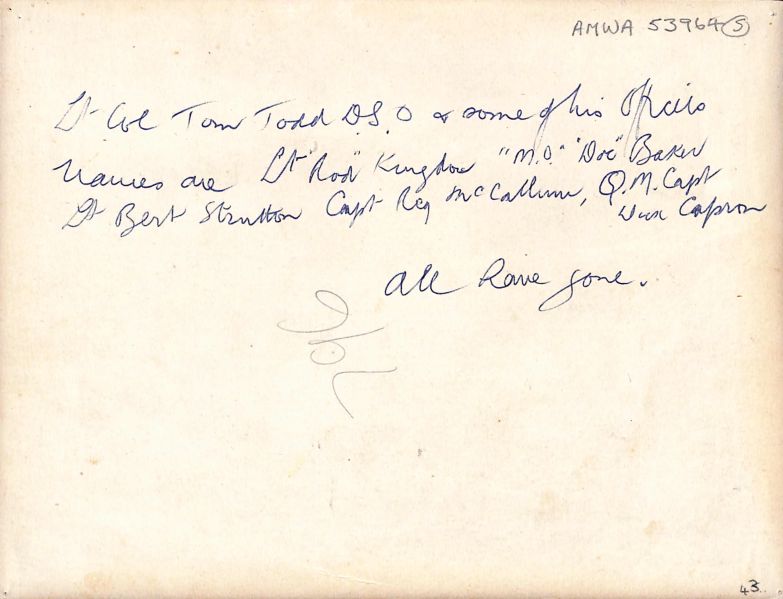 AMWA 53964 S
Lt Col Tom Todd D.S.O & some of his Officers
Names are Lt "Rod" Kingdon "M.O." "Doc" Baker
Lt Bert Strutton Capt Reg McCallum, Q.M. Capt
Dick Capron
All have gone.
43.